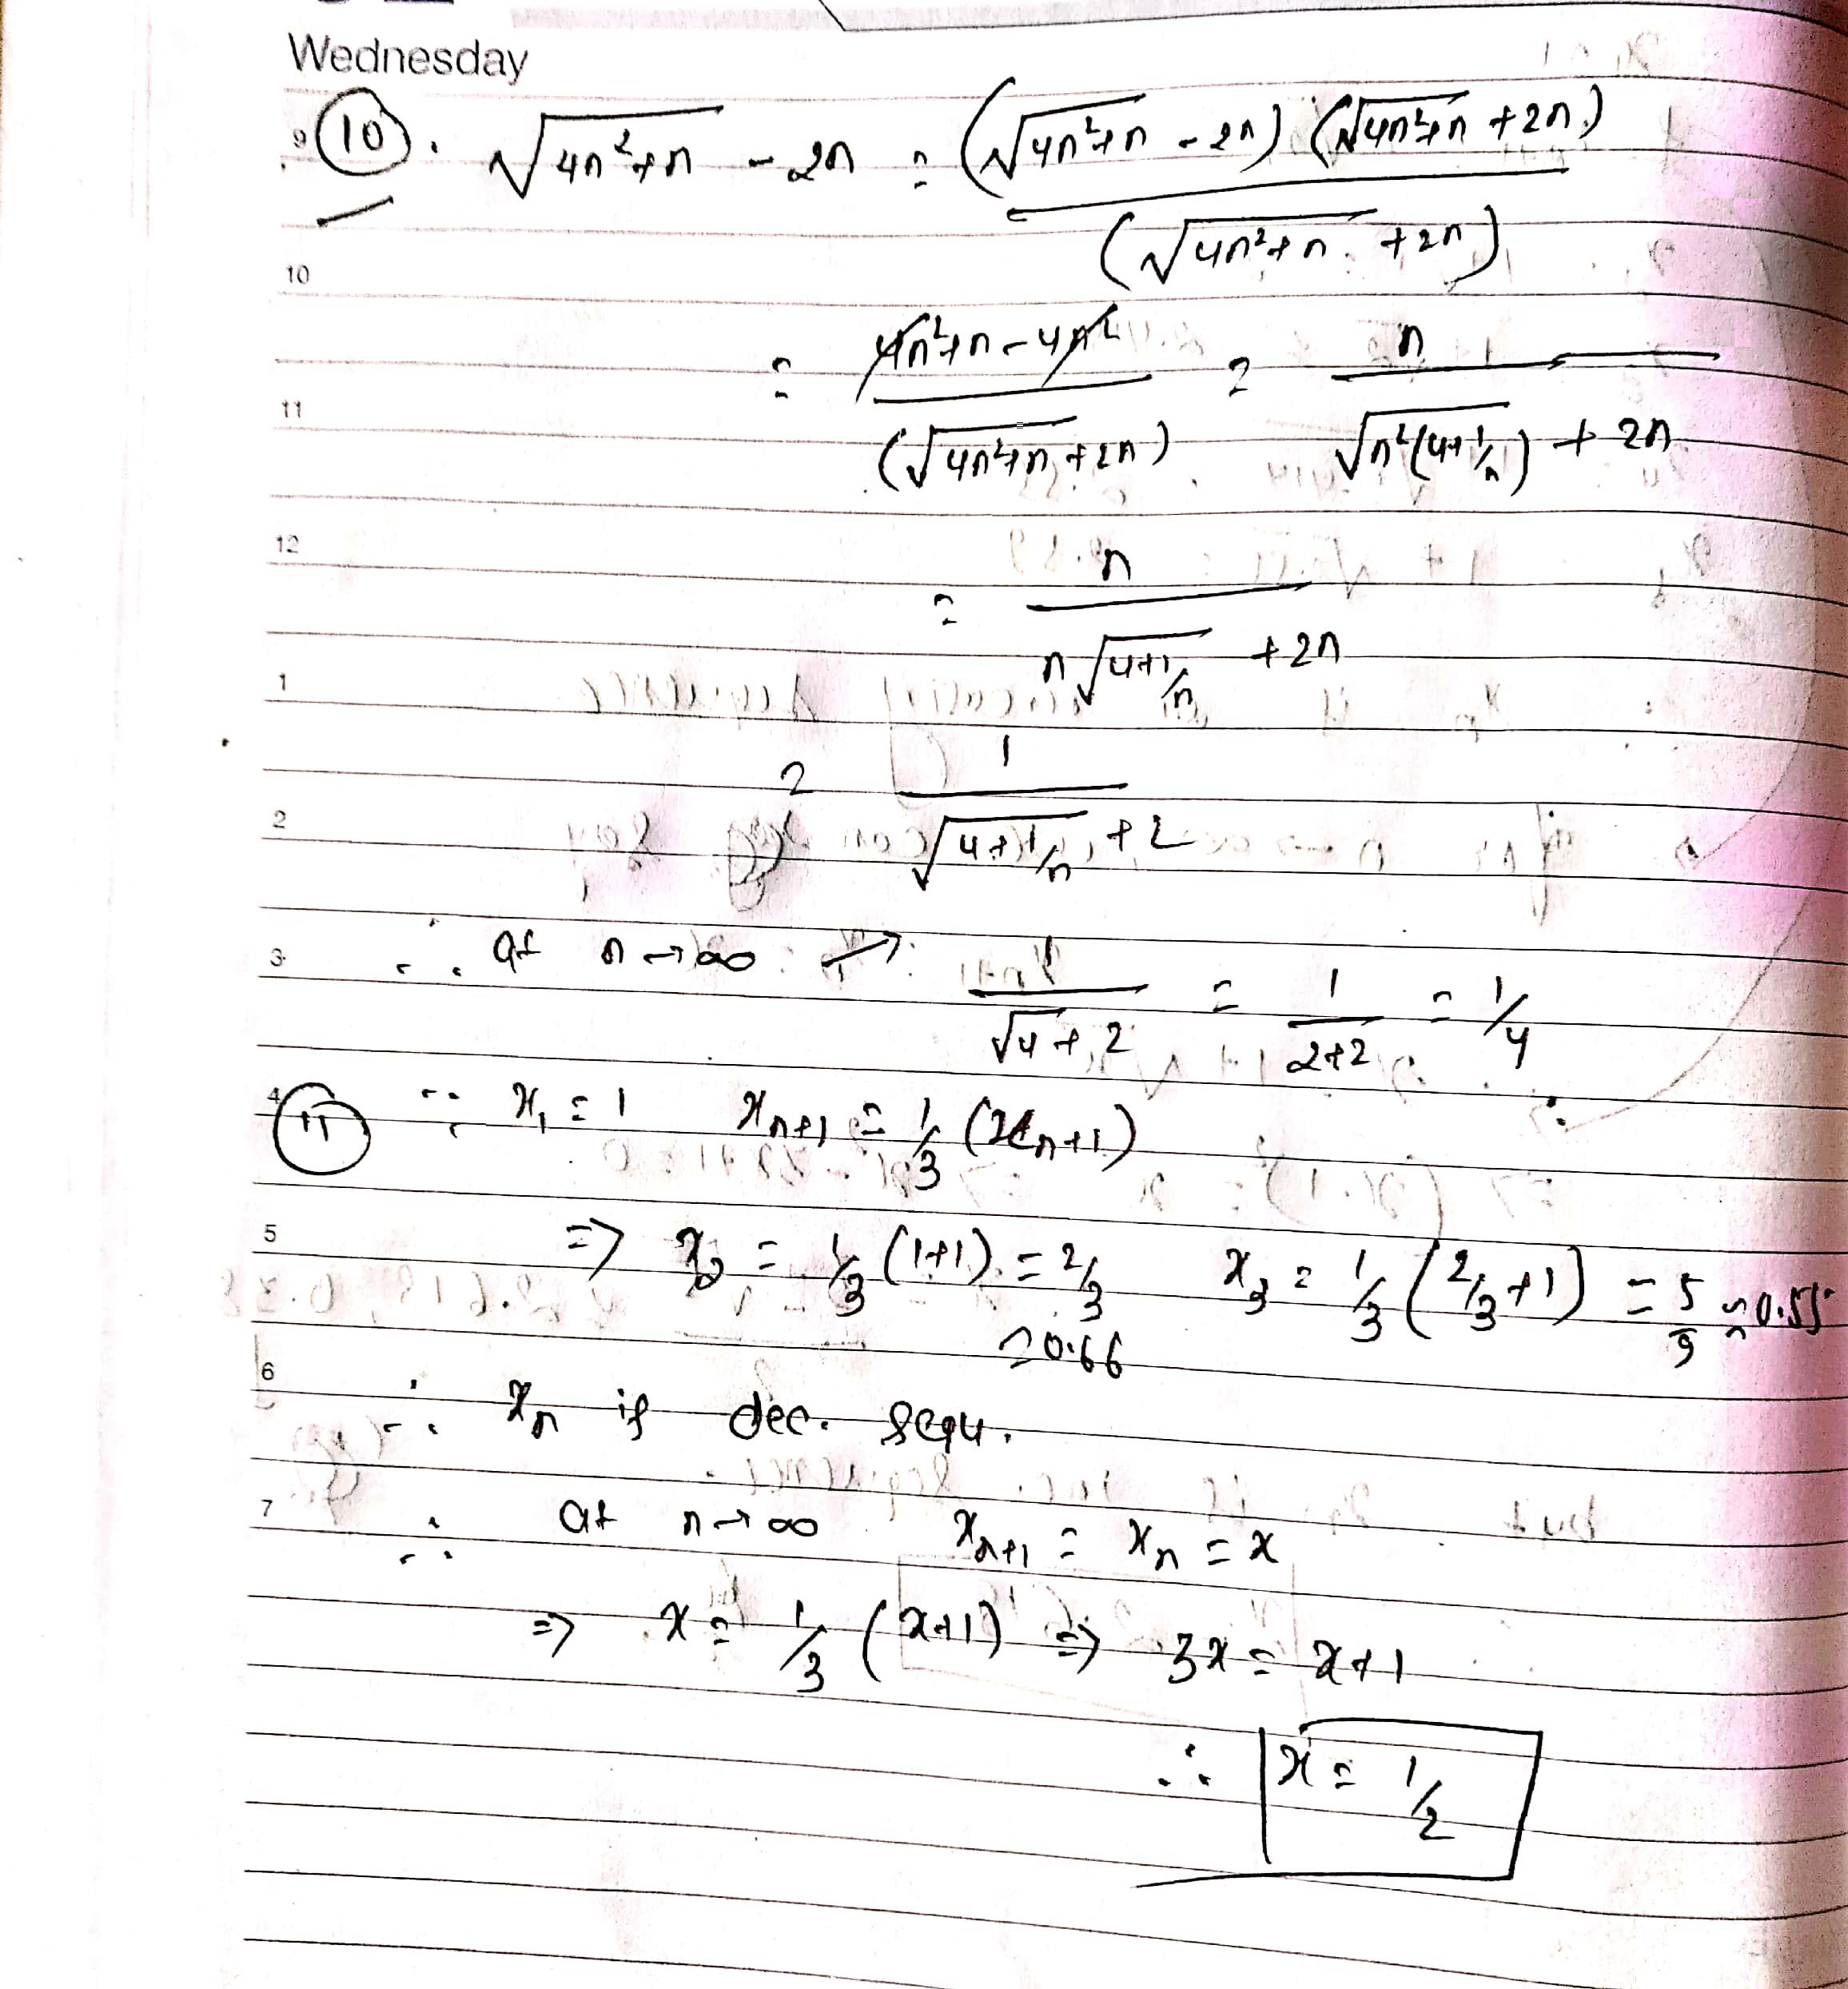 Wednesday
9 (10). √(4n²+n) - 2n = (√(4n²+n) - 2n) (√(4n²+n) + 2n) / (√(4n²+n) + 2n)
10
11 = (4n²+n-4n²) / (√(4n²+n) + 2n) = n / (√(n²(4+1/n)) + 2n)
12
= n / (n√(4+1/n) + 2n)
1
2 = 1 / (√(4+1/n) + 2)
3 ∴ at n→∞ → 1 / (√4 + 2) = 1 / (2+2) = 1/4
4 (11) ∵ x₁ = 1 xₙ₊₁ = 1/3 (xₙ+1)
5 ⇒ x₂ = 1/3 (1+1) = 2/3 x₃ = 1/3 (2/3+1) = 5/9 ≈ 0.55
≈ 0.66
6 ∴ xₙ is dec. sequ.
7 ∴ at n→∞ xₙ₊₁ = xₙ = x
⇒ x = 1/3 (x+1) ⇒ 3x = x+1
∴ x = 1/2